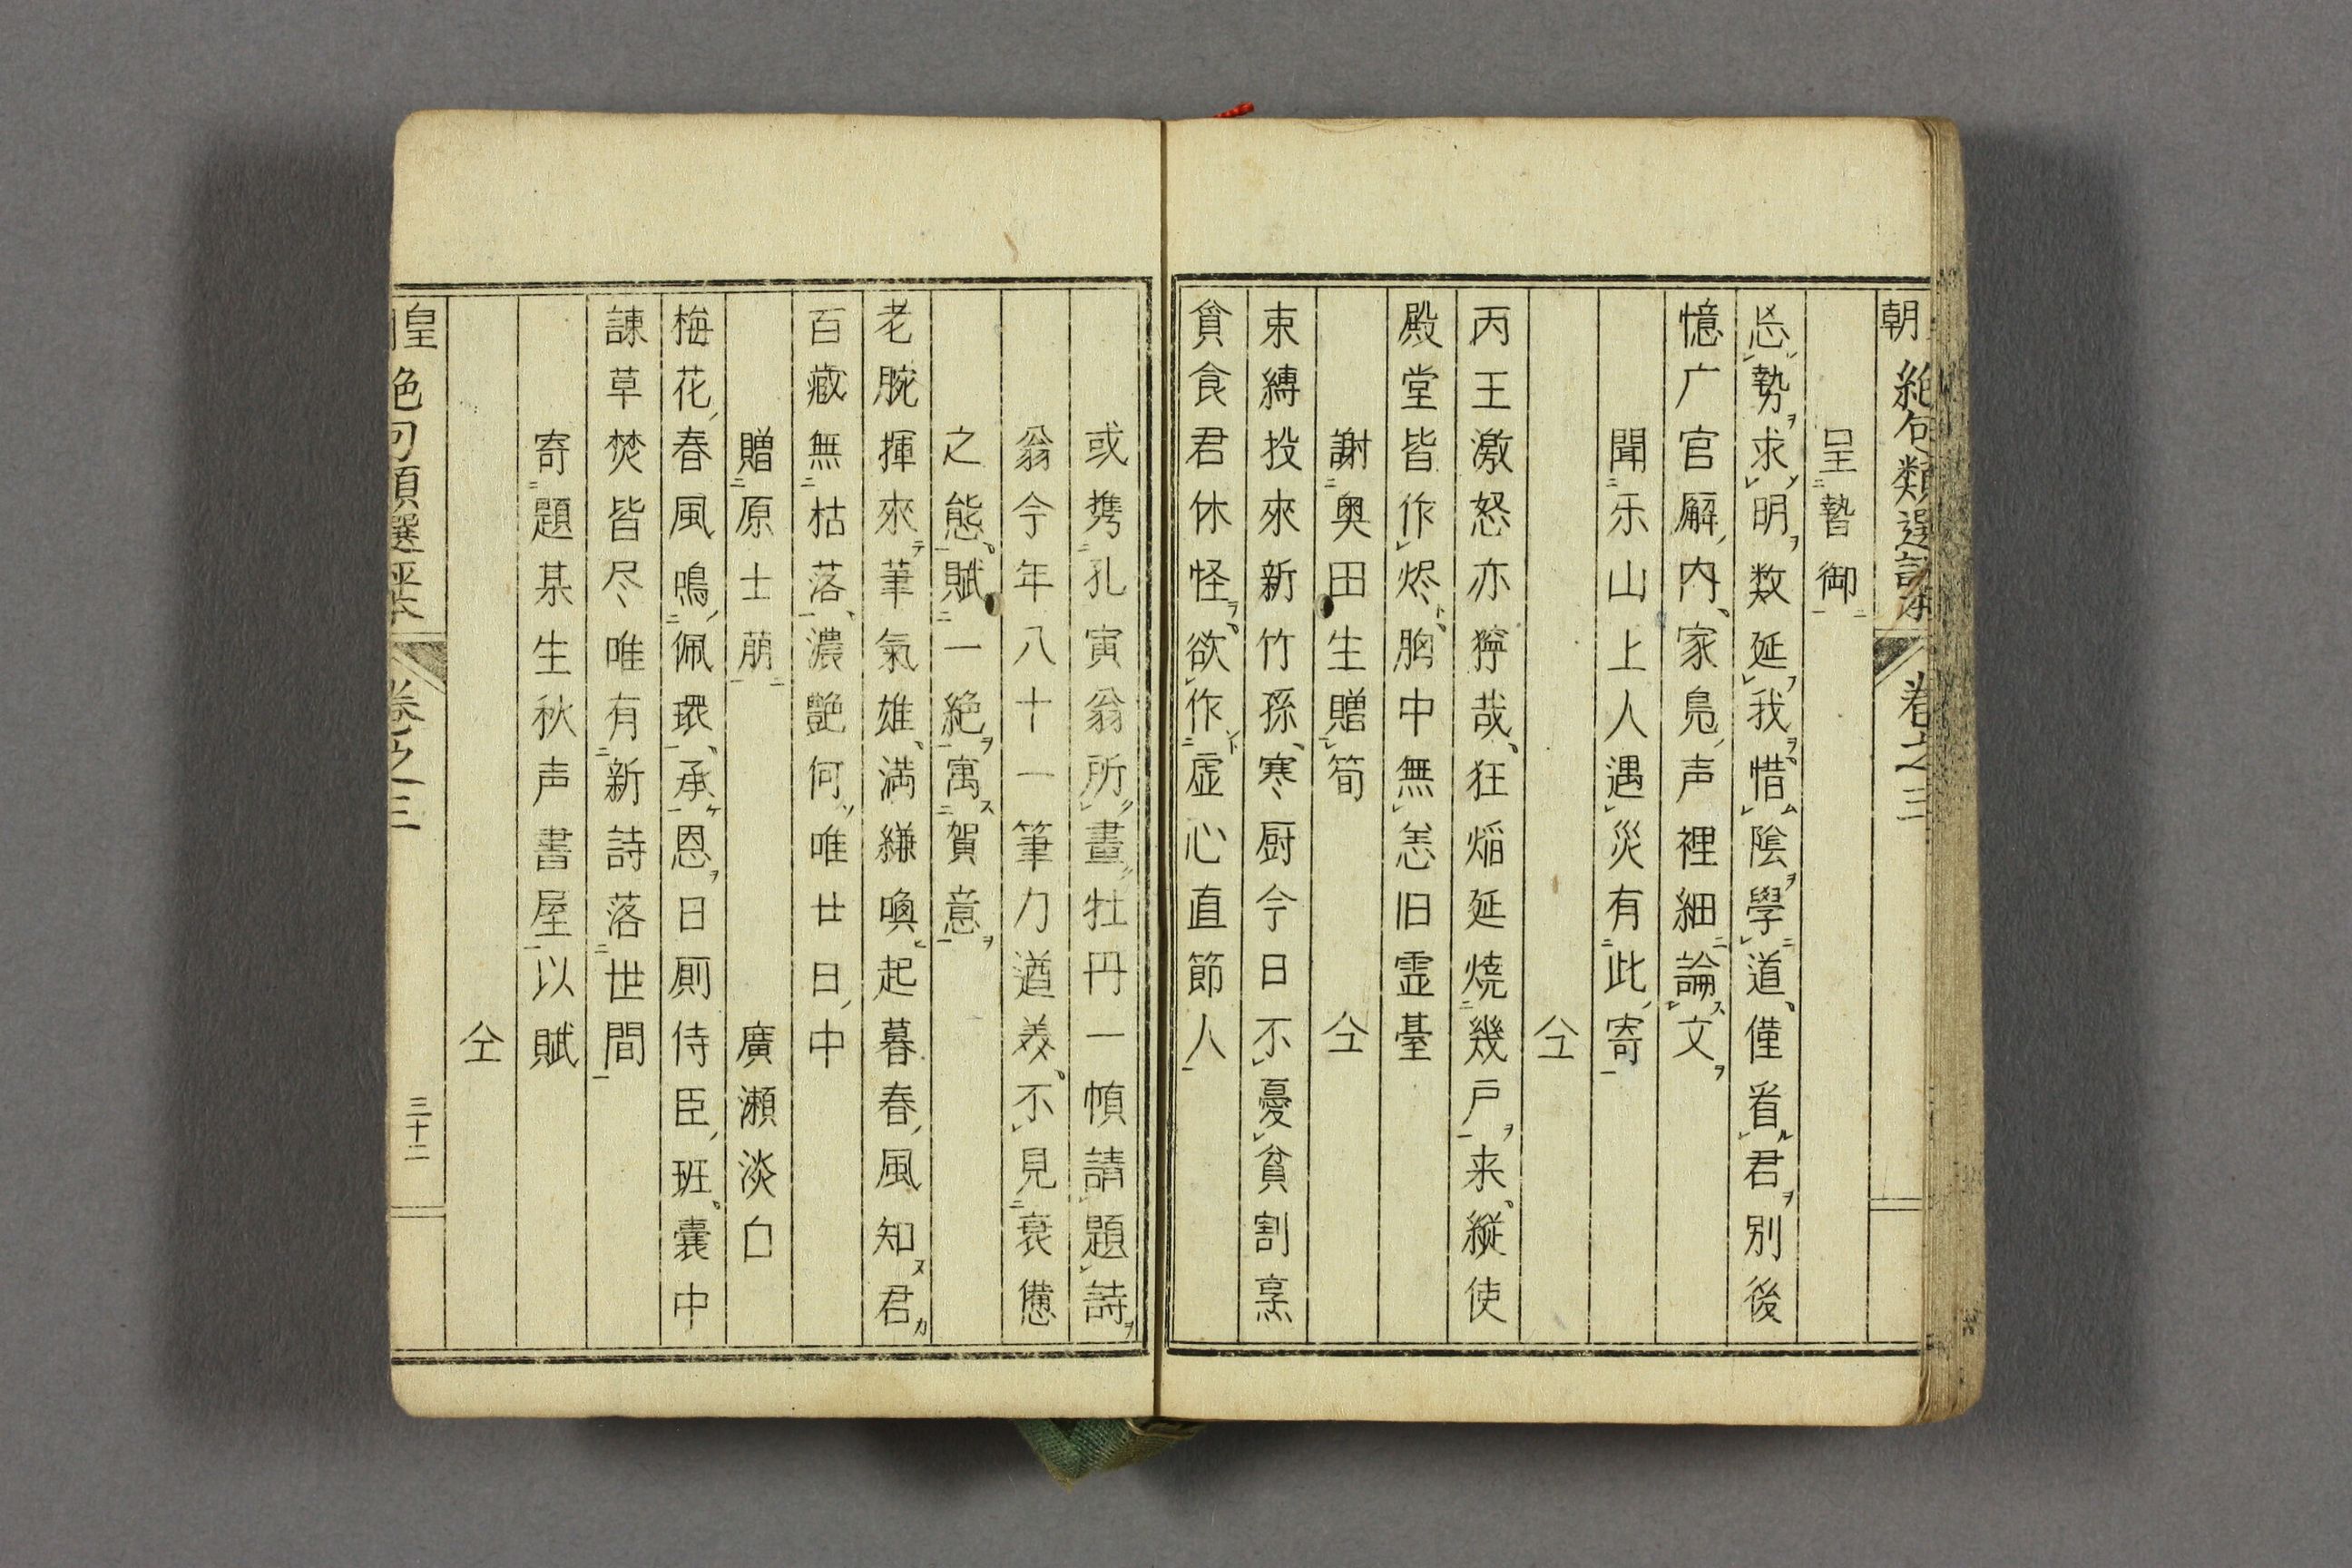 朝
絶句類選評本
卷之三
呈贄御
忘勢求明数延我惜陰學道僅看君別後
憶广官廨内家鳧声裡細論文
聞乐山上人遇災有此寄
仝
丙王激怒亦獰哉狂焰延燒幾戸来縦使
殿堂皆作烬胸中無恙旧霊臺
謝奥田生贈筍
仝
束縛投來新竹孫寒厨今日不憂貧割烹
貧食君休怪欲作虚心直節人
或携孔寅翁所畫牡丹一幀請題詩
翁今年八十一筆力遒美不見衰憊
之態賦一絶寓賀意
老腕揮來筆氣雄満縑喚起暮春風知君
百歳無枯落濃艶何唯廿日中
贈原士萠
廣瀬淡囱
梅花春風鳴佩環承恩日厠侍臣班囊中
諫草焚皆尽唯有新詩落世間
寄題某生秋声書屋以賦
仝
皇
絶句類選評本
卷之三
三十二